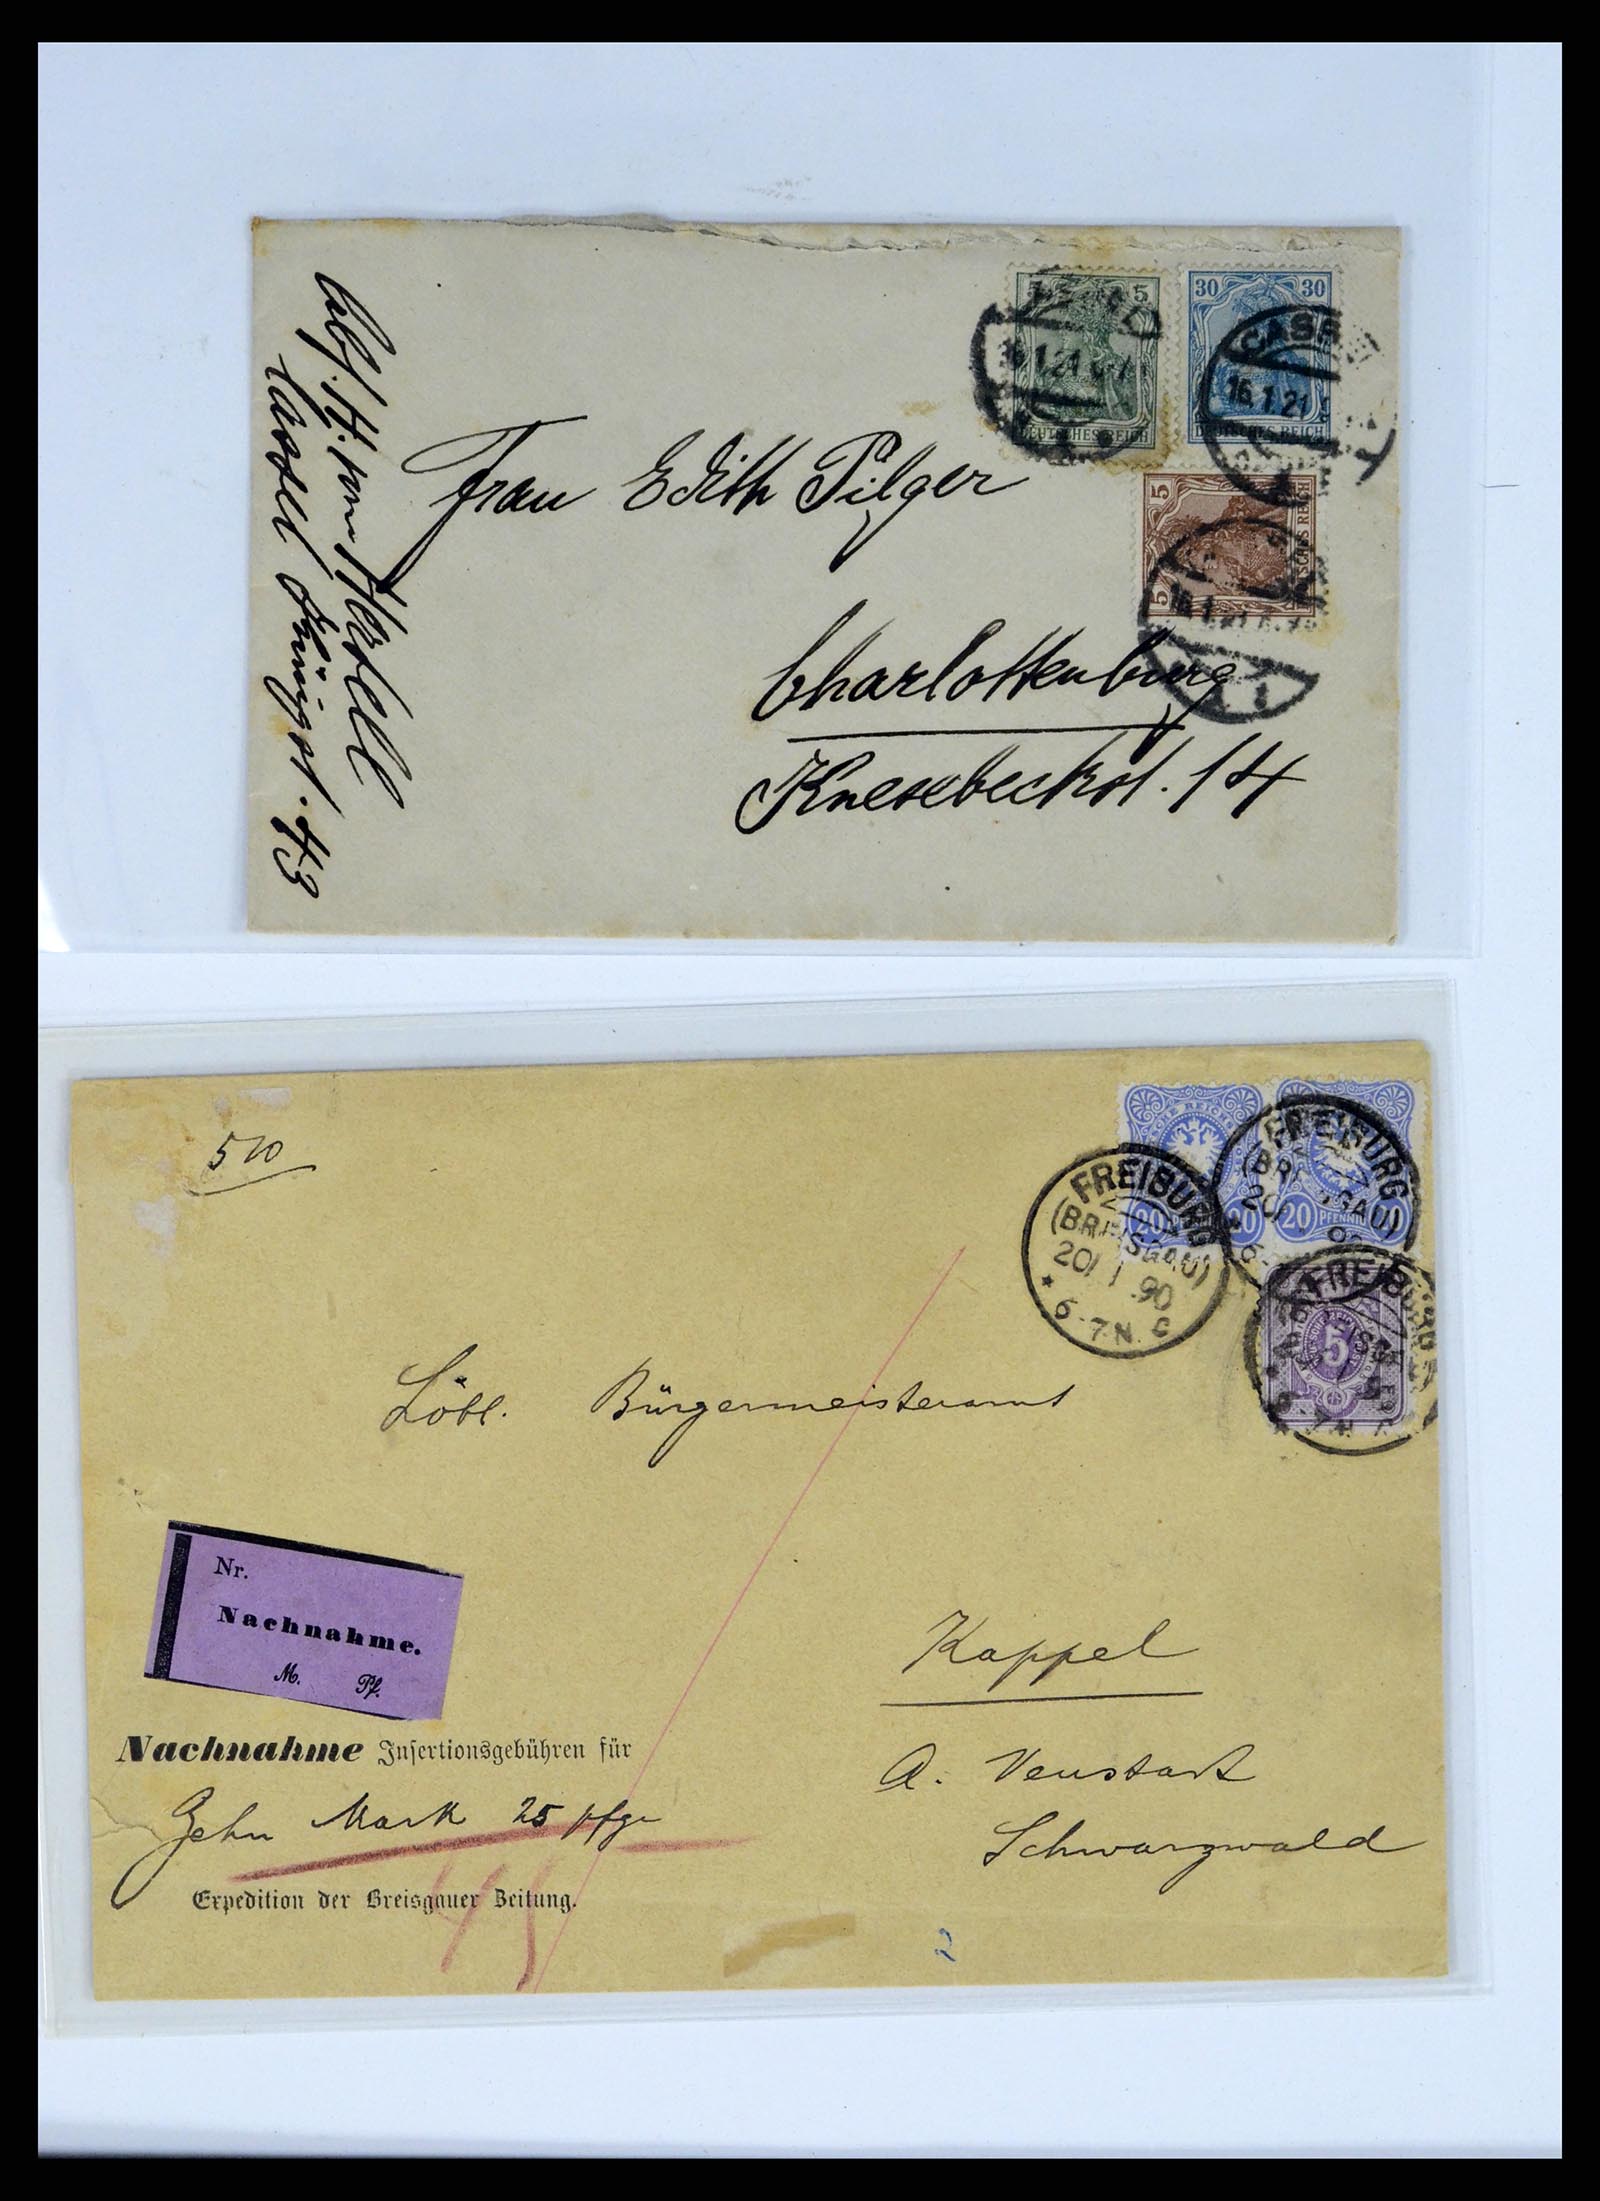 5 5
DEUTSCHES REICH
30 30
DEUTSCHES REICH
CASSEL
16.1.21
5
5
Frau Edith Pilger
Charlottenburg
Knesebeckst. 14
Abs. H. von
Cassel 43
510
20 20
20 PFENNIG 20
FREIBURG
(BREISGAU)
20 1 90
6-7N. C
FREIBURG
(BREISGAU)
FREIBURG
5
Löbl. Bürgermeisteramt
Nr.
Nachnahme.
M. Pf.
Kappel
A. Neustadt
Schwarzwald
Nachnahme Insertionsgebühren für
Zehn Mark 25 pfge
Expedition der Breisgauer Zeitung.
45